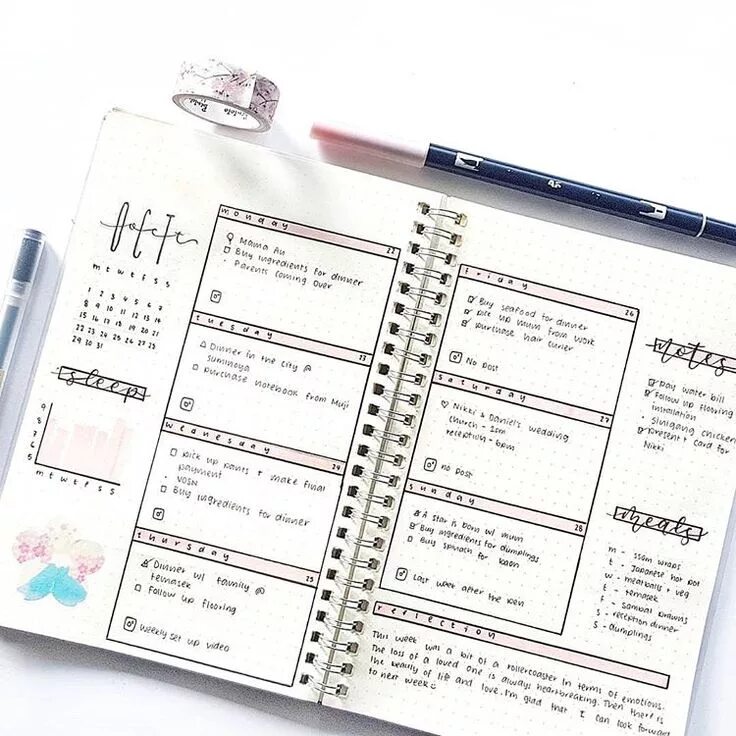 m t w t f s s
1 2 3 4 5 6 7
8 9 10 11 12 13 14
15 16 17 18 19 20 21
22 23 24 25 26 27 28
29 30 31
sleep
9
8
7
6
5
m t w t f s s
monday
22
Mama Au
Buy ingredients for dinner
Parents coming over
tuesday
23
Dinner in the city @
suminoya
purchase notebook from Muji
wednesday
24
pick up pants + make final
payment
VOSN
Buy ingredients for dinner
thursday
25
Dinner w/ family @
temasek
Follow up flooring
weekly set up video
friday
26
Buy seafood for dinner
pick up mum from work
purchase hair curler
No post
saturday
27
Nikki & Daniel's wedding
church - 1pm
reception - 6pm
no post
sunday
28
A star is born w/ mum
Buy ingredients for dumplings
Buy spinach for
Last week after the pen
notes
pay water bill
Follow up flooring
installation
sinigang chicken
present + card for
Nikki
meals
m - ssam wraps
t - Japanese hot pot
w - meatballs + veg
t - temasek
f - sambal prawns
s - reception dinner
s - dumplings
reflection
This week was a bit of a rollercoaster in terms of emotions.
The loss of a loved one is always heartbreaking. Then there is
the beauty of life and love. I'm glad that I can look forward
to next week